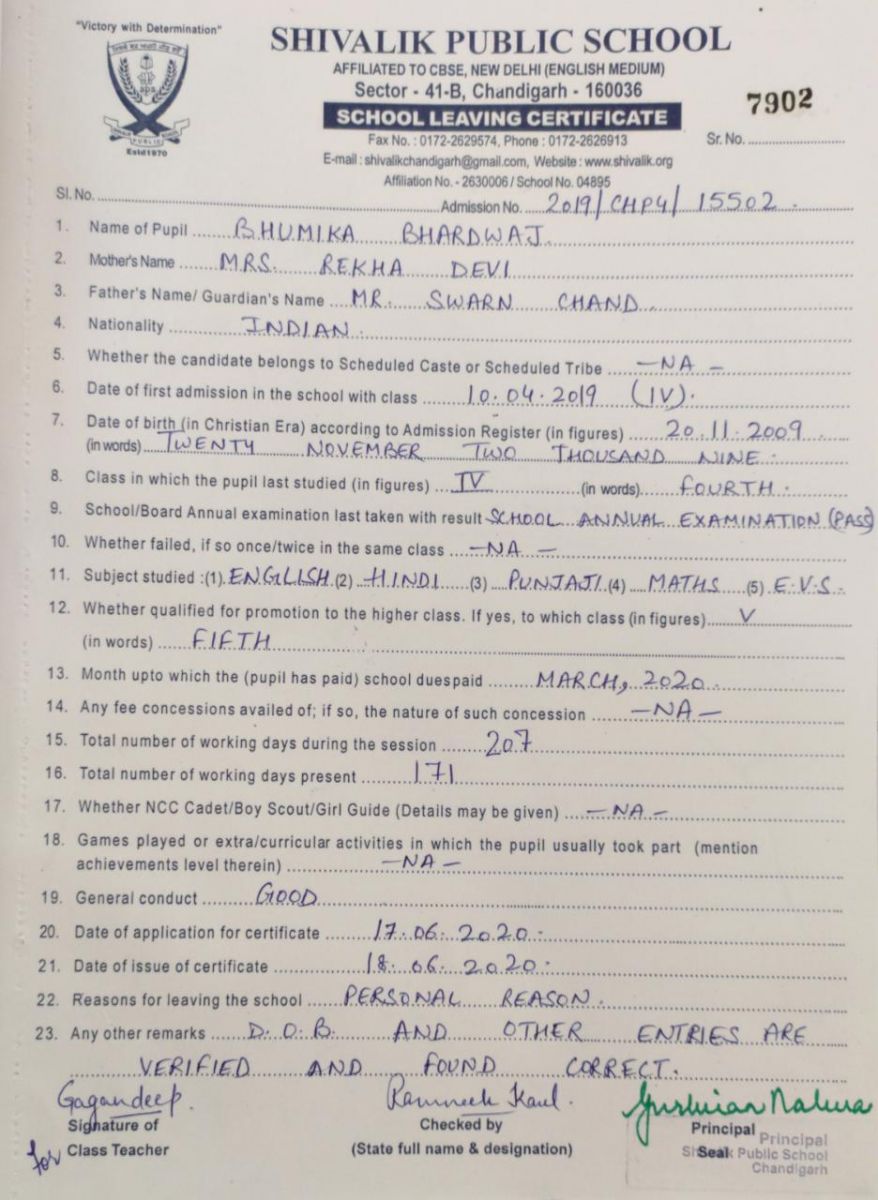 "Victory with Determination"
SHIVALIK PUBLIC SCHOOL
AFFILIATED TO CBSE, NEW DELHI (ENGLISH MEDIUM)
Sector - 41-B, Chandigarh - 160036
SCHOOL LEAVING CERTIFICATE
7902
Fax No. : 0172-2629574, Phone : 0172-2626913
Sr. No.
E-mail : shivalikchandigarh@gmail.com, Website : www.shivalik.org
Affiliation No. - 2630006 / School No. 04895
PUBLIC
Estd1970
Sl. No. Admission No. 2019/CHP4/15502.
1. Name of Pupil BHUMIKA BHARDWAJ
2. Mother's Name MRS. REKHA DEVI
3. Father's Name/ Guardian's Name MR. SWARN CHAND
4. Nationality INDIAN.
5. Whether the candidate belongs to Scheduled Caste or Scheduled Tribe -NA-
6. Date of first admission in the school with class 10.04.2019 (IV).
7. Date of birth (in Christian Era) according to Admission Register (in figures) 20.11.2009
(in words) TWENTY NOVEMBER TWO THOUSAND NINE.
8. Class in which the pupil last studied (in figures) IV (in words) FOURTH.
9. School/Board Annual examination last taken with result SCHOOL ANNUAL EXAMINATION (PASS)
10. Whether failed, if so once/twice in the same class -NA-
11. Subject studied :(1) ENGLISH (2) HINDI (3) PUNJAJI (4) MATHS (5) E.V.S.
12. Whether qualified for promotion to the higher class. If yes, to which class (in figures) V
(in words) FIFTH
13. Month upto which the (pupil has paid) school duespaid MARCH, 2020.
14. Any fee concessions availed of; if so, the nature of such concession -NA-
15. Total number of working days during the session 207
16. Total number of working days present 171
17. Whether NCC Cadet/Boy Scout/Girl Guide (Details may be given) -NA-
18. Games played or extra/curricular activities in which the pupil usually took part (mention
achievements level therein) -NA-
19. General conduct GOOD
20. Date of application for certificate 17.06.2020.
21. Date of issue of certificate 18.06.2020.
22. Reasons for leaving the school PERSONAL REASON.
23. Any other remarks D.O.B. AND OTHER ENTRIES ARE
VERIFIED AND FOUND CORRECT.
Gagandeep. Ramneek Kaul.
Signature of Checked by Principal
for Class Teacher (State full name & designation) Seal
Principal
Public School
Chandigarh